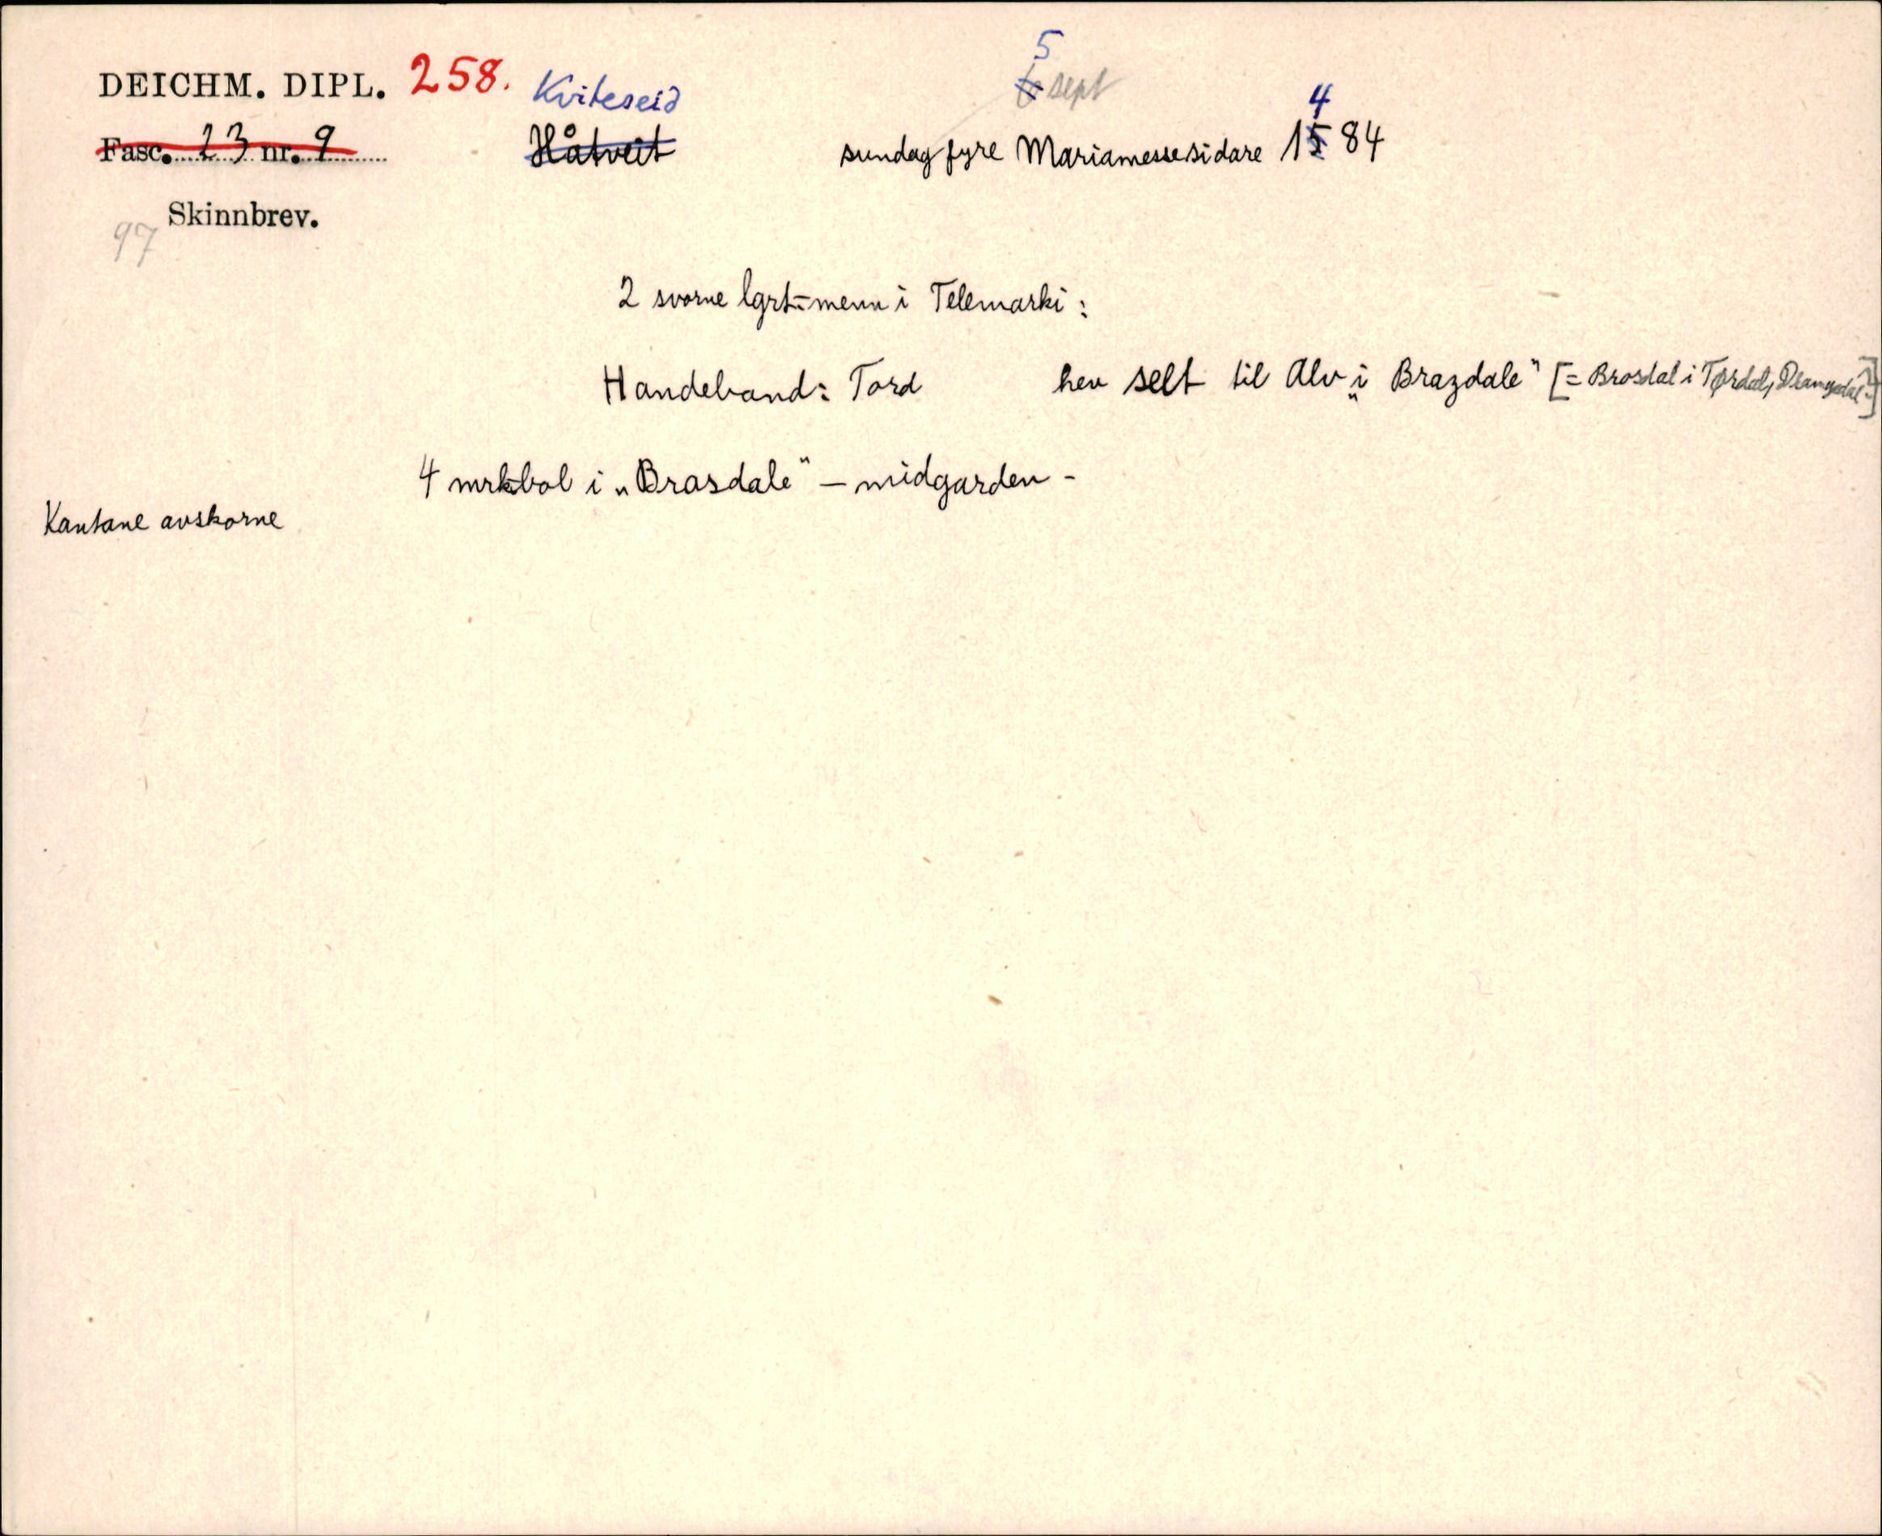 DEICHM. DIPL. 258. Kviteseid 5 6 sept
Fasc. 23 nr. 9 Håtveit sundag fyre Mariamessesidare 1584 4
Skinnbrev.
97
2 svorne lgrt-menn i Telemarki:
Handeband: Tord hev selt til Alv „i Brazdale" [= Brosdal i Tørdal, Drangedal]
4 mrkbol i „Brasdale" – midgarden -
Kantane avskorne